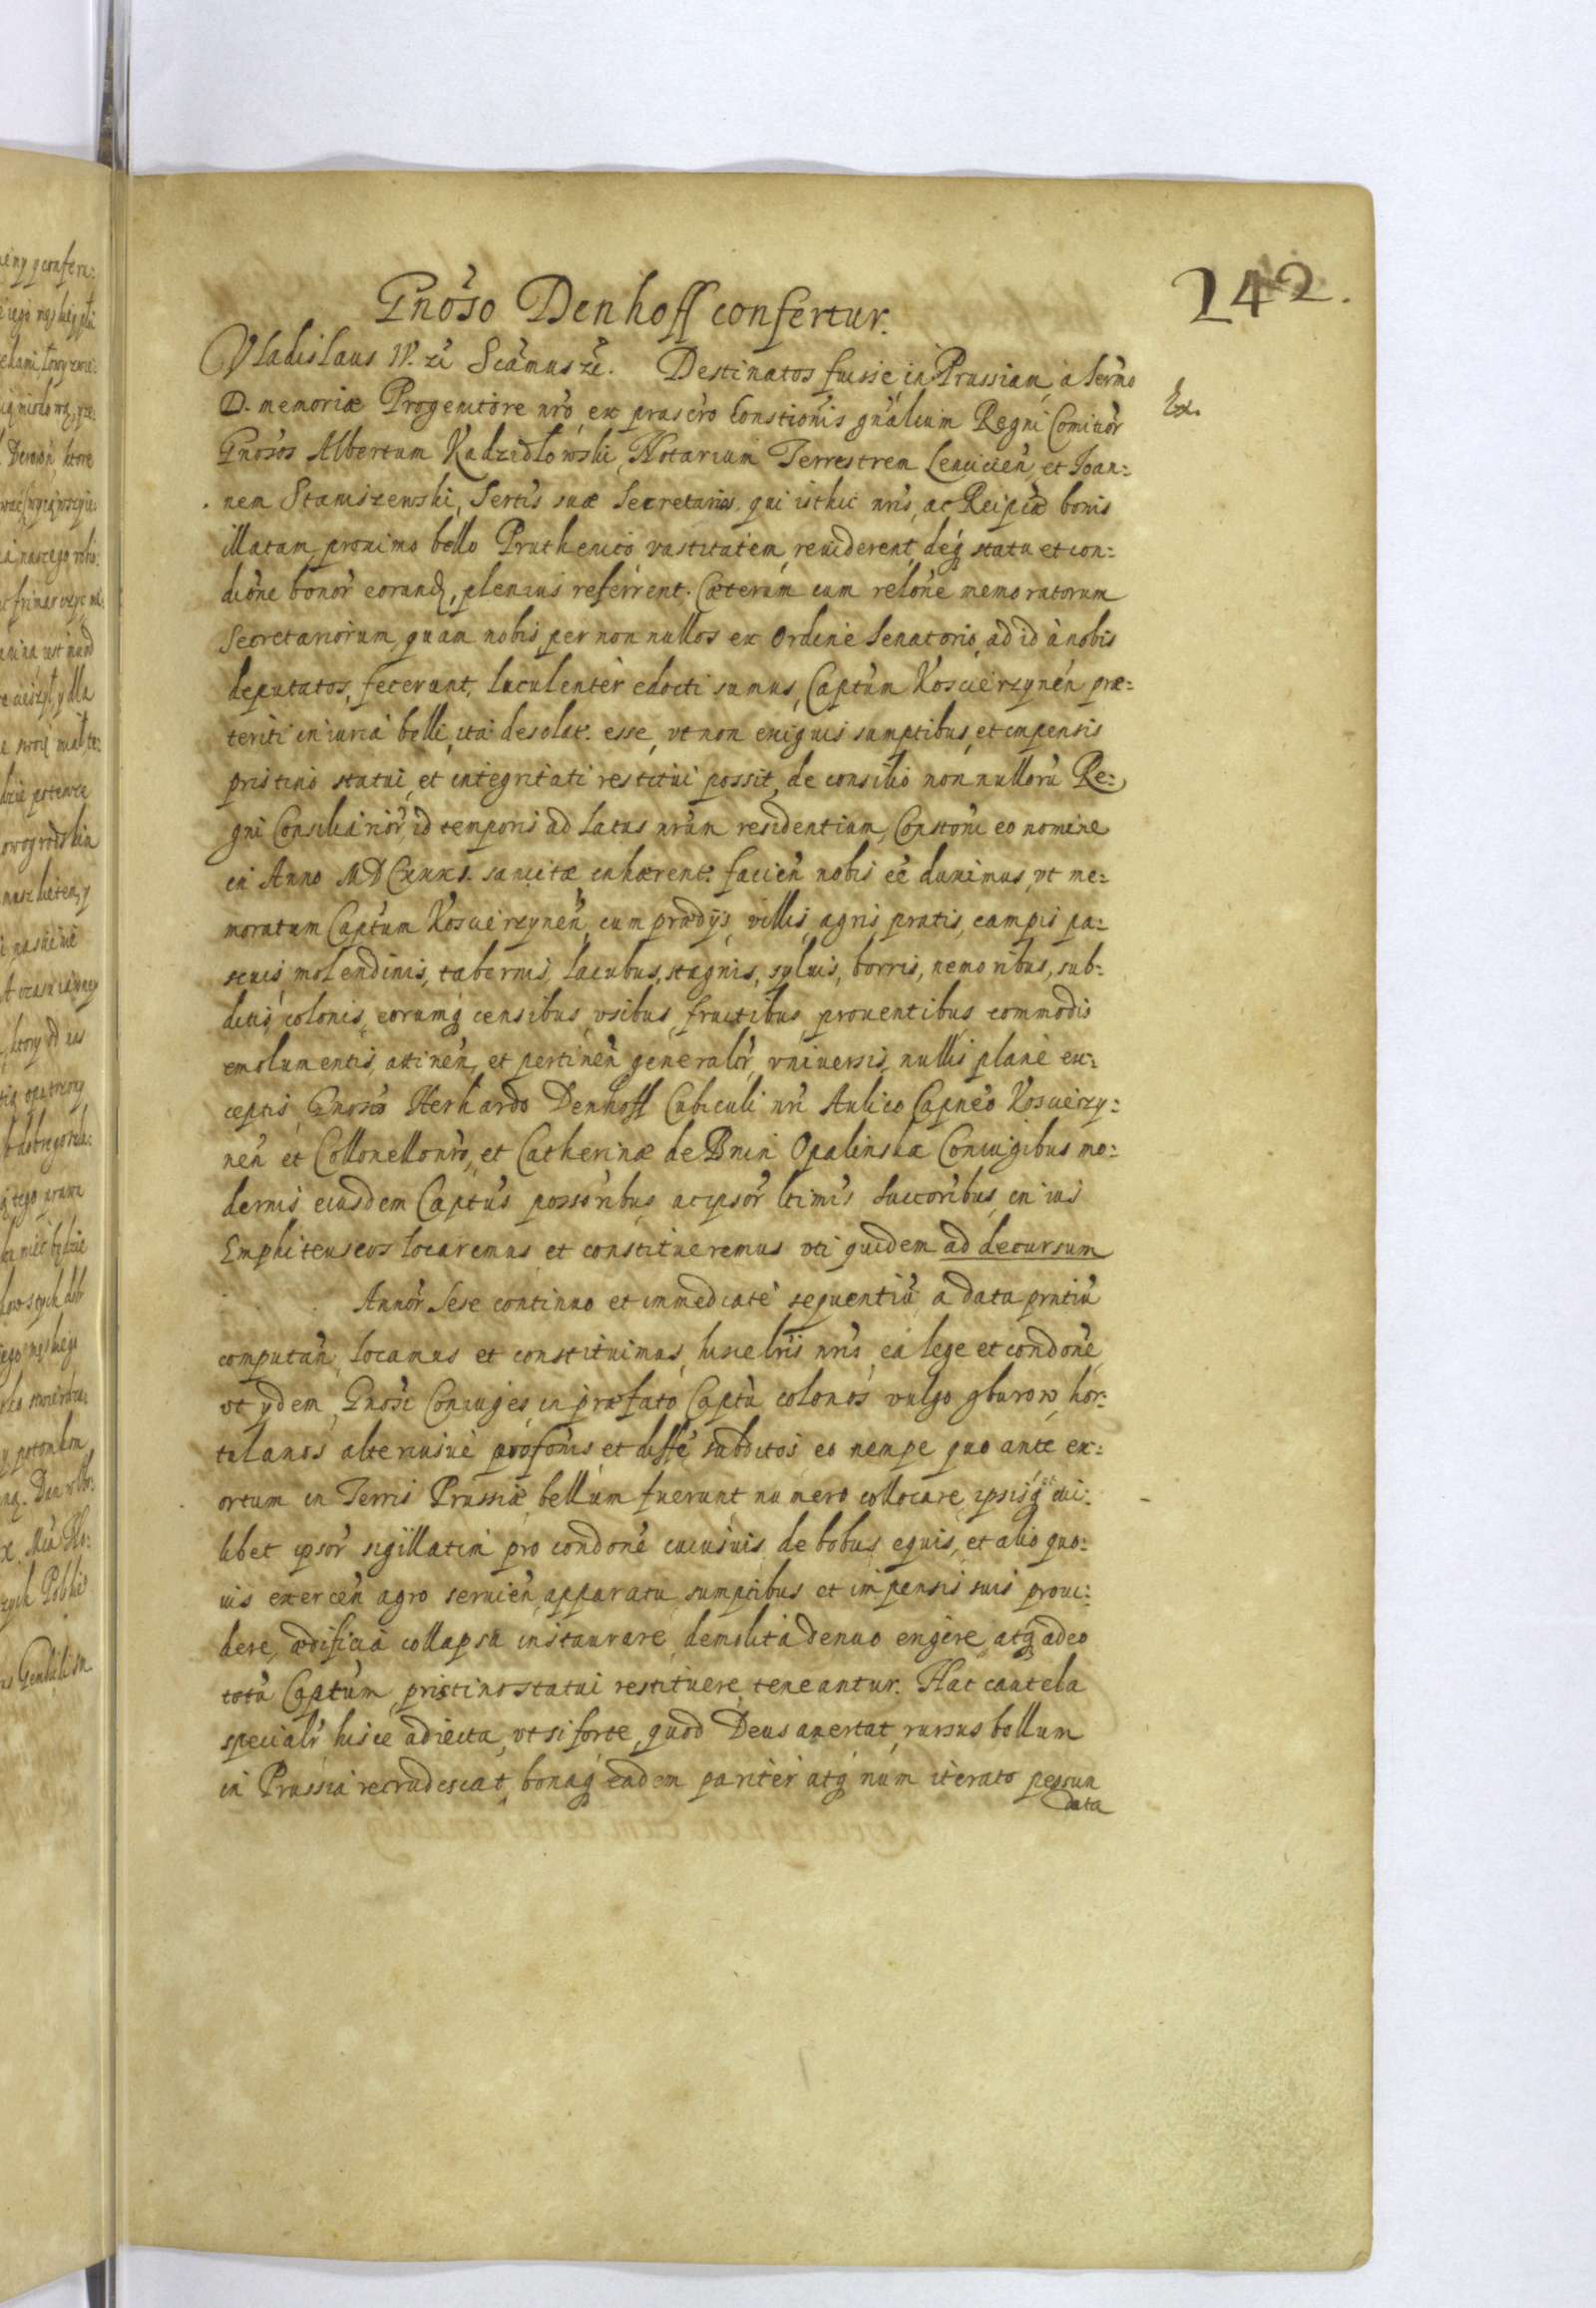 242.
Gnōso Denhoff confertur.
Vladislaus IV. &c Scāmus &c. Destinatos fuisse in Prussiam, a Serm̄o
Ex.
D. memoriæ Progenitore nr̄o, ex præscr̄o Constiōnis gn̄alium Regni Comitiōr
Gnōsos Albertum Kadzidłowski, Notarium Terrestrem Lencicień, et Ioan:
nem Staniszewski, Sertis suæ Secretarios, qui isthic nr̄is, ac Reipcæ bonis
illatam proximo bello Pruthenico vastitatem, reviderent, deq statu et con:
diōne bonor̄ eorund, plenius referrent. Cæterum cum relōne memoratorum
Secretariorum, quam nobis per non nullos ex Ordine Senatorio, ad id à nobis
deputatos, fecerunt, luculenter edocti sumus, Captūm Koscierzynēn præ:
teriti iniuria belli, ita desolat. esse, vt non exiguis sumptibus, et impensis
pristino statui, et integritati restitui possit, de consilio non nullorū Re:
gni Consiliariōr, id temporis ad latus nr̄um residentium, Constōni eo nomine
in Anno MDCXXXI. sancitæ inhærent. faciēn nobis eē duximus, vt me:
moratum Captūm Koscierzynēn, cum prædijs, villis, agris, pratis, campis pa:
scuis, molendinis, tabernis, lacubus, stagnis, syluis, borris, nemoribus, sub:
ditis, colonis, eorumq censibus, vsibus, fructibus, prouentibus, commodis
emolumentis, attinēn, et pertinēn generalr̄, vniuersis, nullis plane ex:
ceptis, Gnōso Herhardo Denhoff Cubiculi nr̄i Aulico Capnēo Koscierzy:
nēn et Collonello nr̄o, et Catherinæ de Bnin Opalinska Coniugibus mo:
dernis eiusdem Captūs possōribus, ac ipsōr ltimis succōribus, in ius
Emphiteuseos locaremus et constitueremus vti quidem ad decursum
Annōr sese continuo et immediate sequentiū a data prntiū
computān, locamus et constituimus, hisce lr̄is nr̄is, ea lege et condōne,
vt ydem, Gnōsi Coniuges, in præfato Captū colonos vulgo gburow, hor:
tulanos alteriusue profōnis, et diffē subditos eo nempe quo ante ex:
ortum in Terris Prussiæ bellum fuerunt numero collocare, ipsisq cui:
libet ipsōr sigillatim pro condōne cuiusuis de bobus, equis, et alio quo:
uis exercēn agro seruiēn, apparatu, sumptibus et impensis suis proui:
dere, ædificia collapsa instaurare, demolita denuo erigere, atq adeo
totū Captūm, pristino statui restituere, teneantur. Hac cautela
specialr̄ hisce adiecta, vt si forte, quod Deus auertat, rursus bellum
in Prussia recrudescat, bonaq eadem pariter atq num iterato pessun
data